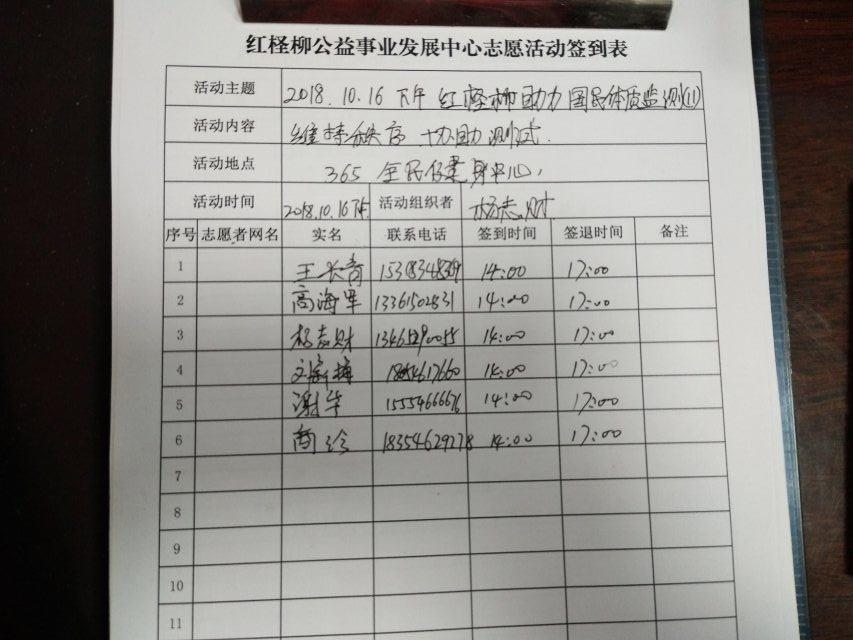 红柽柳公益事业发展中心志愿活动签到表
活动主题 2018.10.16 下午 红柽柳助力 国民体质监测(11)
活动内容 维持秩序 协助测试.
活动地点 365 全民健身中心,
活动时间 2018.10.16下午 活动组织者 杨志财
序号 志愿者网名 实名 联系电话 签到时间 签退时间 备注
1 王长青 14:00 17:00
2 高海军 13361502831 14:00 17:00
3 杨志财 13465290055 14:00 17:00
4 14:00 17:00
5 谢华 15554666676 14:00 17:00
6 商玲 18354629278 14:00 17:00
7
8
9
10
11